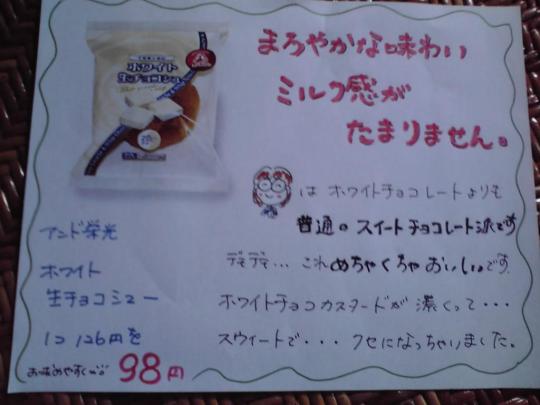 ホワイト
生チョコシュー
まろやかな味わい
ミルク感が
たまりません。
は ホワイトチョコレートよりも
普通の スイートチョコレート派です
デモデモ... これめちゃくちゃおいしいです
ホワイトチョコカスタードが 濃くって・・・
スウィートで・・・ クセになっちゃいました。
アンド栄光
ホワイト
生チョコシュー
1コ 126円を
お求めやすく
98円